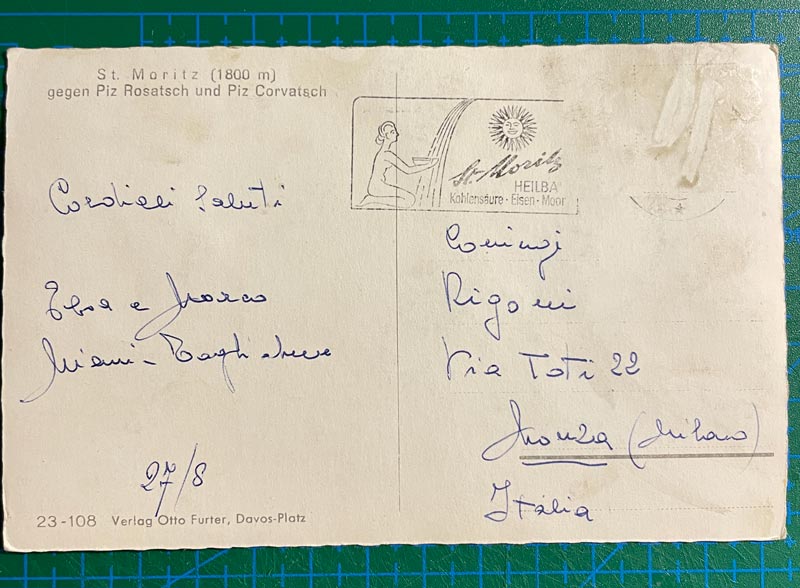 St. Moritz (1800 m)
gegen Piz Rosatsch und Piz Corvatsch
St. Moritz
HEILBA
Kohlensäure - Eisen - Moor
Cordiali Saluti
Elsa e Marco
Miani -
Coniugi
Rigoni
Via Toti 22
Monza (Milano)
Italia
27/8
23-108 Verlag Otto Furter, Davos-Platz